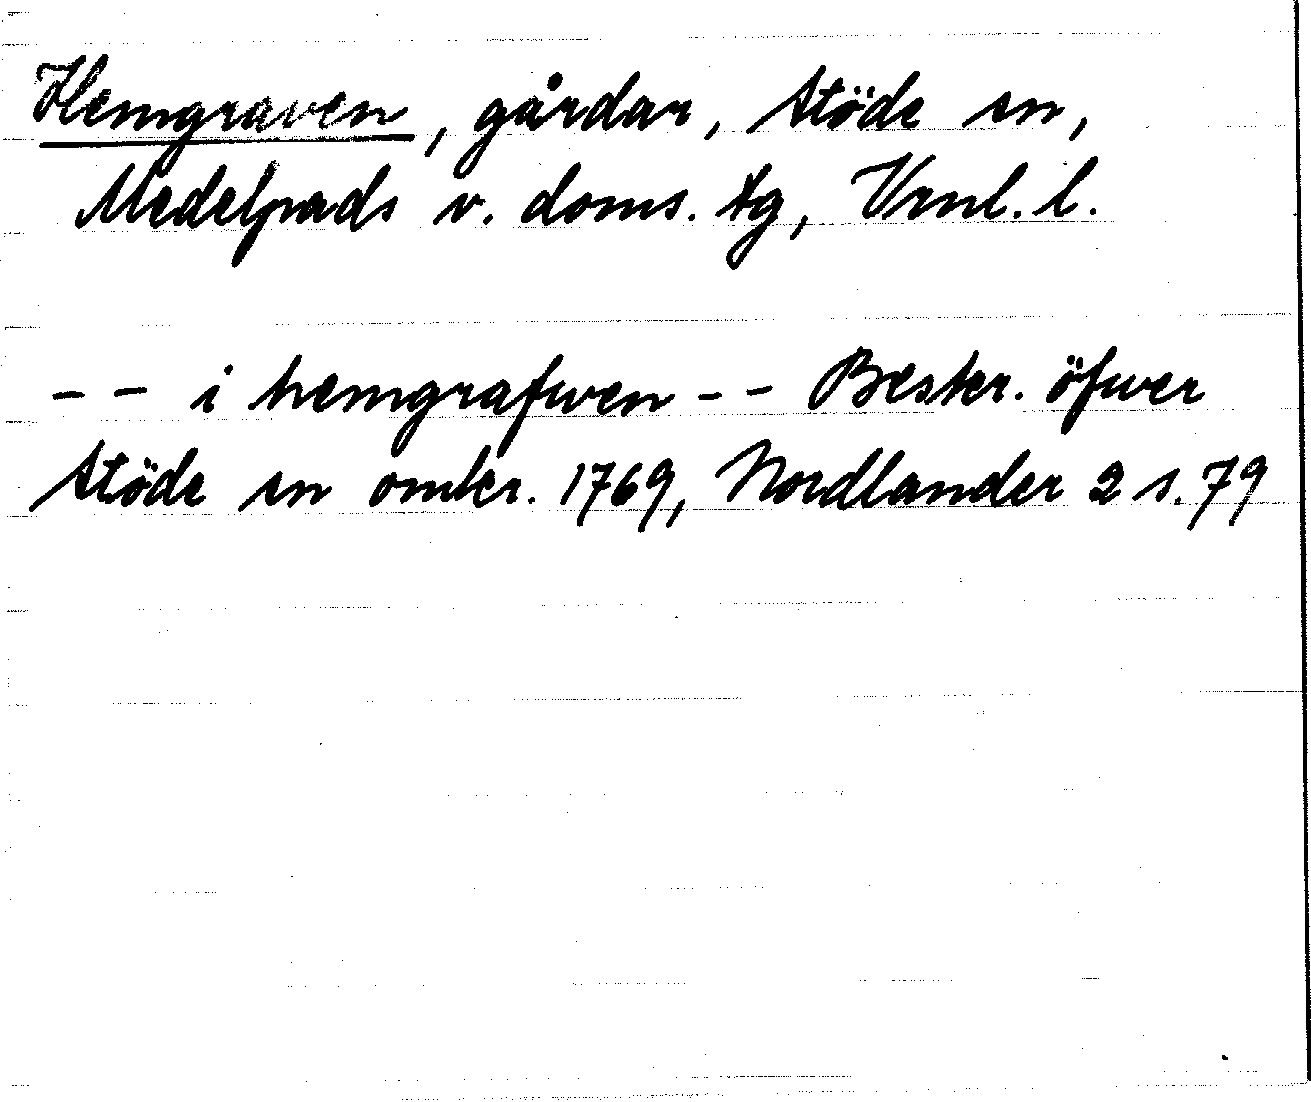 Hemgraven, gårdar, Stöde sn,
Medelpads v. doms. tg, Vrnl. l.
- - i hemgrafwen - - Beskr. öfwer
Stöde sn omkr. 1769, Nordlander 2 s. 79